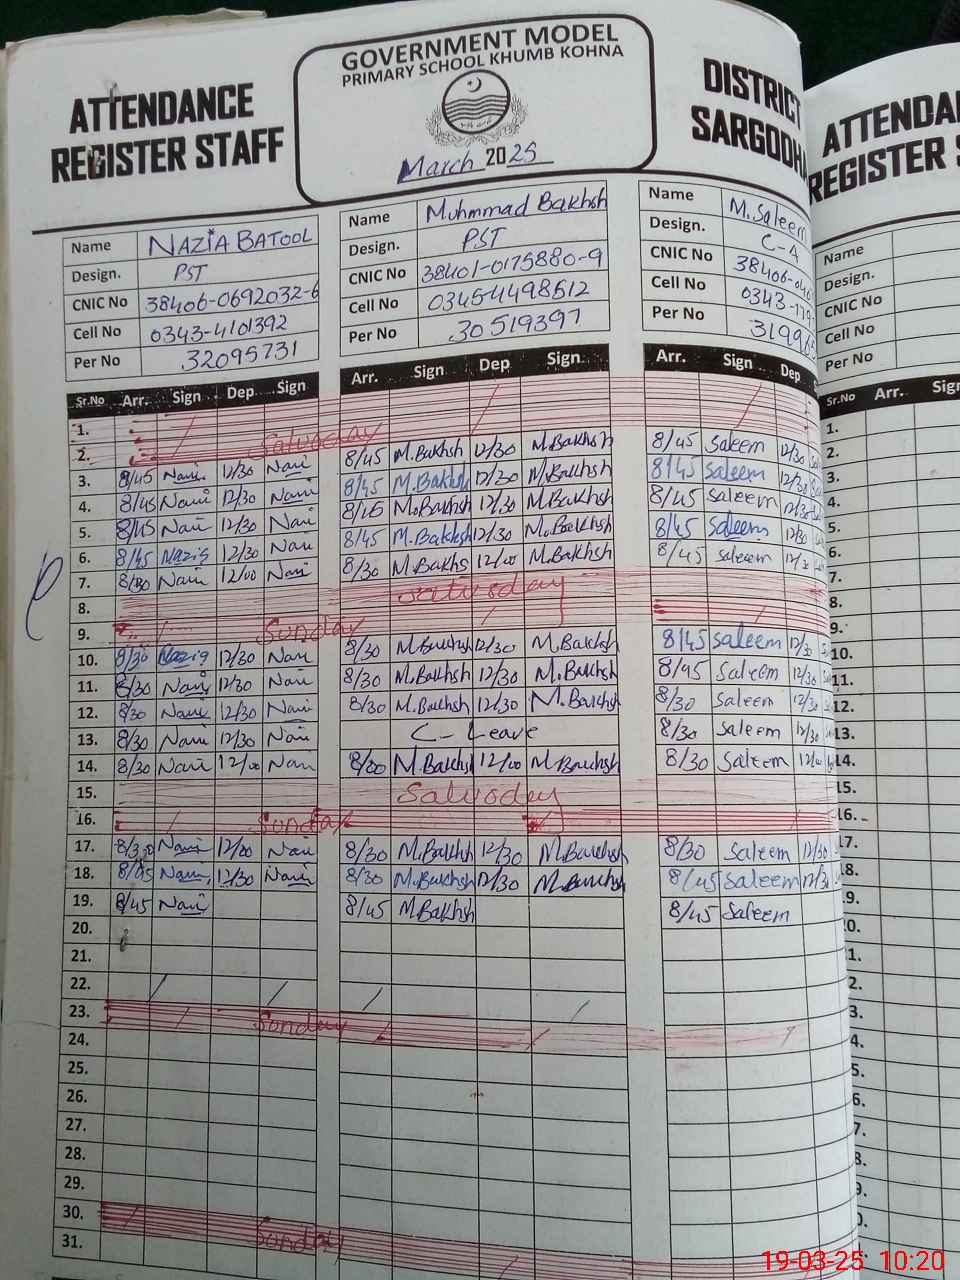 ATTENDANCE
REGISTER STAFF
GOVERNMENT MODEL
PRIMARY SCHOOL KHUMB KOHNA
March 2025
DISTRICT
SARGODHA
ATTENDA
REGISTER S
Name NAZIA BATOOL
Design. PST
CNIC No 38406-0692032-6
Cell No 0343-4101392
Per No 32095731
Name Muhmmad Bakhsh
Design. PST
CNIC No 38401-0175880-9
Cell No 03454498512
Per No 30519397
Name M.Saleem
Design. C-A
CNIC No 38406-040
Cell No 0343-170
Per No 319965
Name
Design.
CNIC No
Cell No
Per No
Sr.No Arr. Sign Dep Sign Arr. Sign Dep Sign Arr. Sign Dep S
Sr.No Arr. Sign
1.
2. Saturday
3. 8/45 Nazi 12/30 Nazi 8/45 M.Bakhsh 12/30 M.Bakhsh 8/45 Saleem 12/30
4. 8/45 Nazi 12/30 Nazi 8/45 M.Bakhsh 12/30 M.Bakhsh 8/45 Saleem 12/30
5. 8/45 Nazi 12/30 Nazi 8/45 M.Bakhsh 12/30 M.Bakhsh 8/45 Saleem 12/30
6. 8/45 Nazia 12/30 Nazi 8/45 M.Bakhsh 12/30 M.Bakhsh 8/45 Saleem 12/30
7. 8/30 Nazi 12/00 Nazi 8/30 M.Bakhs 12/00 M.Bakhsh 8/45 Saleem
8. Saturday
9. Sunday
10. 8/30 Nazia 12/30 Nazi 8/30 M.Bakhsh 12/30 M.Bakhsh 8/45 Saleem 12/30
11. 8/30 Nazi 12/30 Nazi 8/30 M.Bakhsh 12/30 M.Bakhsh 8/45 Saleem 12/30
12. 8/30 Nazi 12/30 Nazi 8/30 M.Bakhsh 12/30 M.Bakhsh 8/30 Saleem 12/30
13. 8/30 Nazi 12/30 Nazi C-Leave 8/30 Saleem 12/30
14. 8/30 Nazi 12/00 Nazi 8/30 M.Bakhsh 12/00 M.Bakhsh 8/30 Saleem 12/00
15. Saturday
16. Sunday
17. 8/30 Nazi 12/00 Nazi 8/30 M.Bakhsh 12/30 M.Bakhsh 8/30 Saleem 12/30
18. 8/45 Nazi 12/30 Nazi 8/30 M.Bakhsh 12/30 M.Bakhsh 8/45 Saleem 12/30
19. 8/45 Nazi 8/45 M.Bakhsh 8/45 Saleem
20.
21.
22.
23. Sunday
24.
25.
26.
27.
28.
29.
30. Sunday
31.
19-03-25 10:20